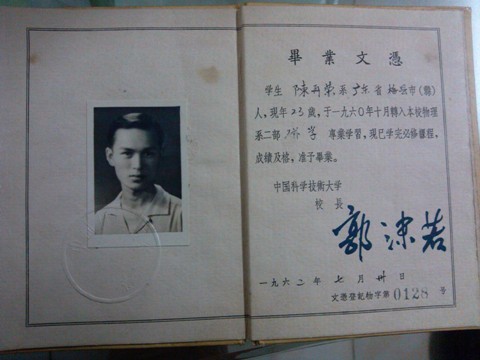 畢業文憑
学生 陳 榮系廣东省 市(縣)
人，現年23歲，于一九六〇年十月轉入本校物理
系二部 学 專業学習，現已学完必修課程，
成績及格，准予畢業。
中国科学技術大学
校長
郭沫若
一九六二年 七月 卅日
文憑登記 字第0128号